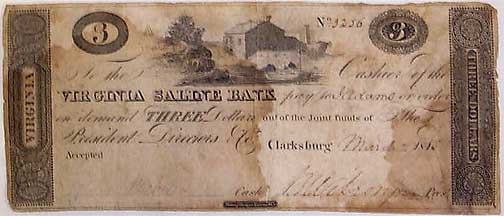 3 No 3236 3
To the Cashier of the
VIRGINIA SALINE BANK pay to or order
on demand THREE Dollars out of the Joint funds of the
President Directors &Co Clarksburg March
Accepted
Cashr Pres
VIRGINIA
THREE DOLLARS